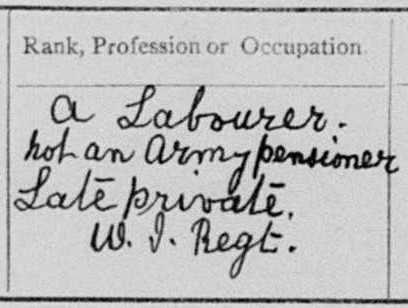 Rank, Profession or Occupation.
a Labourer.
not an Army pensioner
Late private.
W. I. Regt.